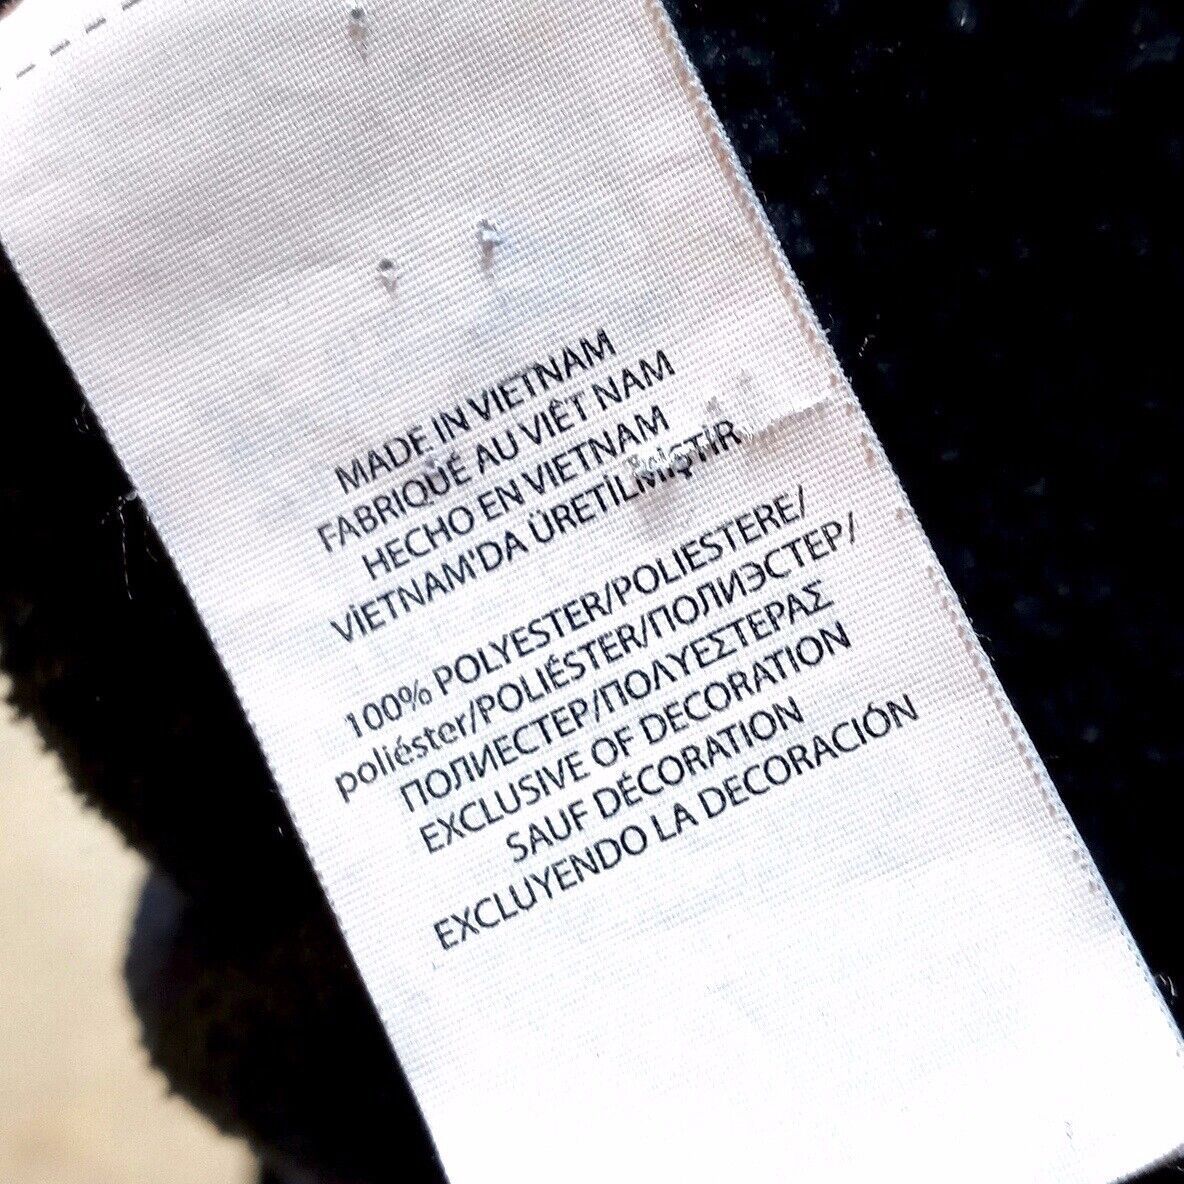 MADE IN VIETNAM
FABRIQUÉ AU VIÊT NAM
HECHO EN VIETNAM
VİETNAM'DA ÜRETİLMİŞTİR
100% POLYESTER/POLIESTERE/
poliéster/POLIÉSTER/ПОЛИЭСТЕР/
ПОЛИЕСТЕР/ΠΟΛΥΕΣΤΕΡΑΣ
EXCLUSIVE OF DECORATION
SAUF DÉCORATION
EXCLUYENDO LA DECORACIÓN